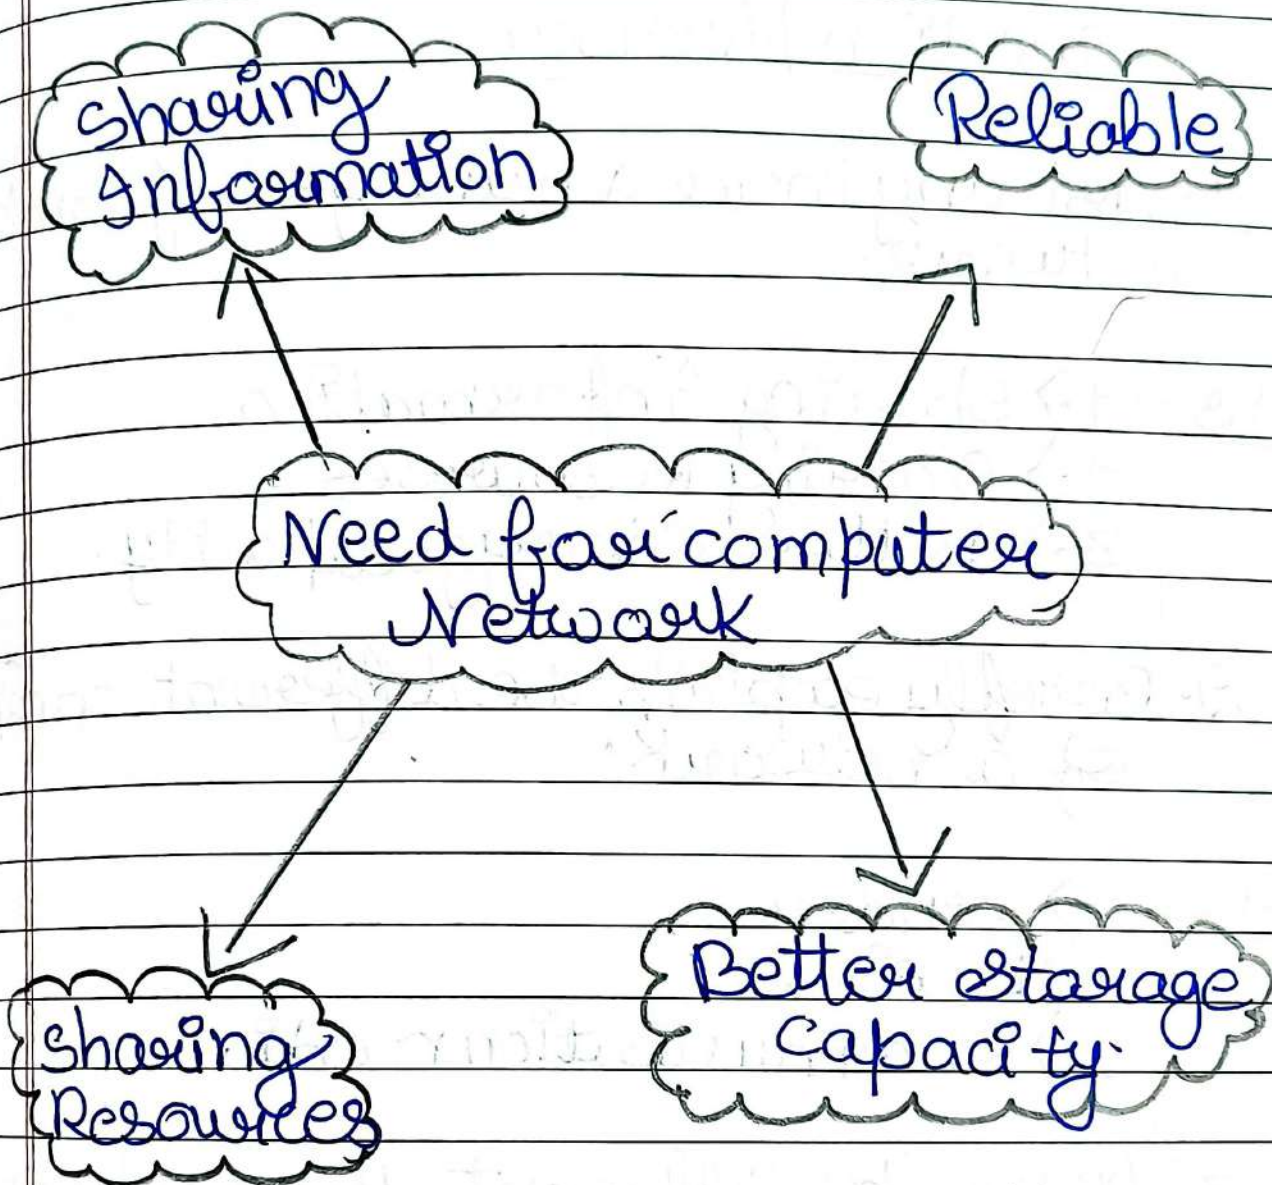 Sharing
Information
Reliable
Need for computer
Network
Sharing
Resources
Better Storage
Capacity.